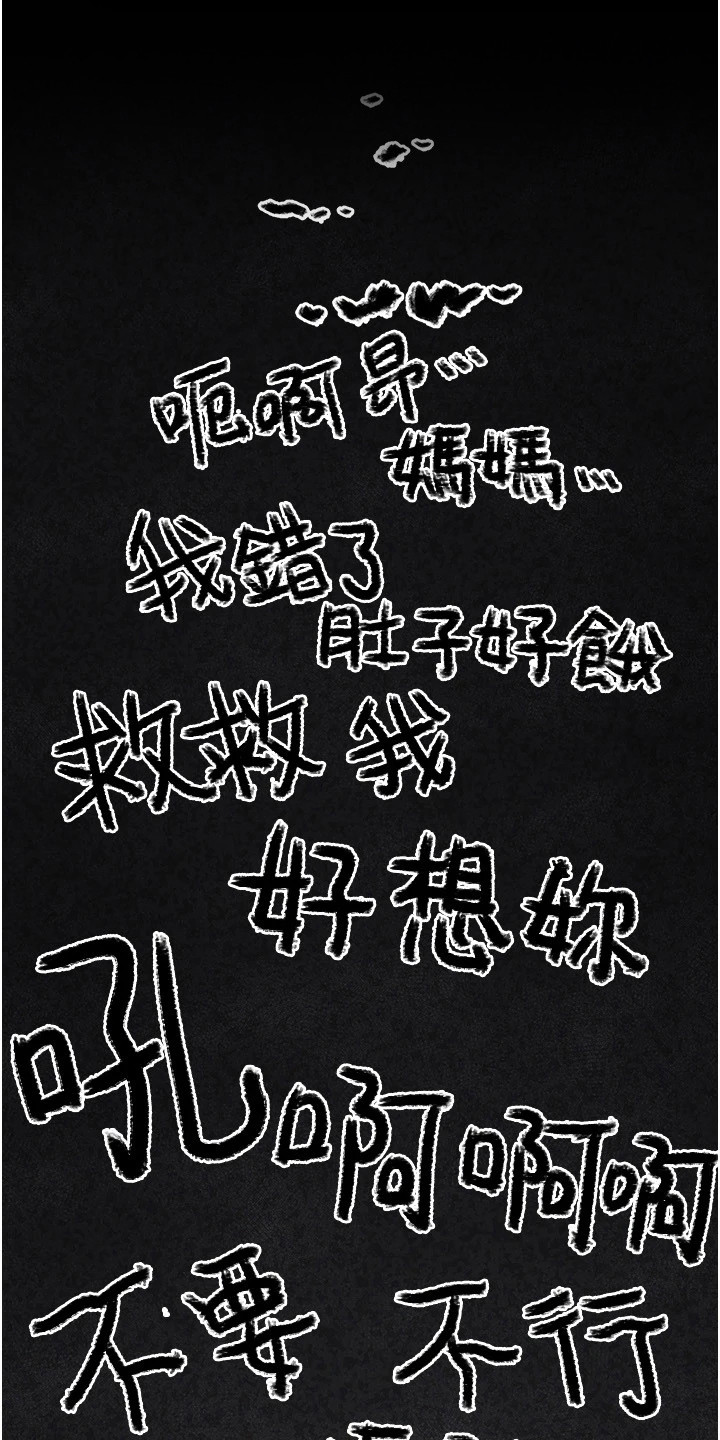 呃啊昂…
媽媽…
我錯了
肚子好餓
救救我
好想妳
吼啊啊啊
不要 不行